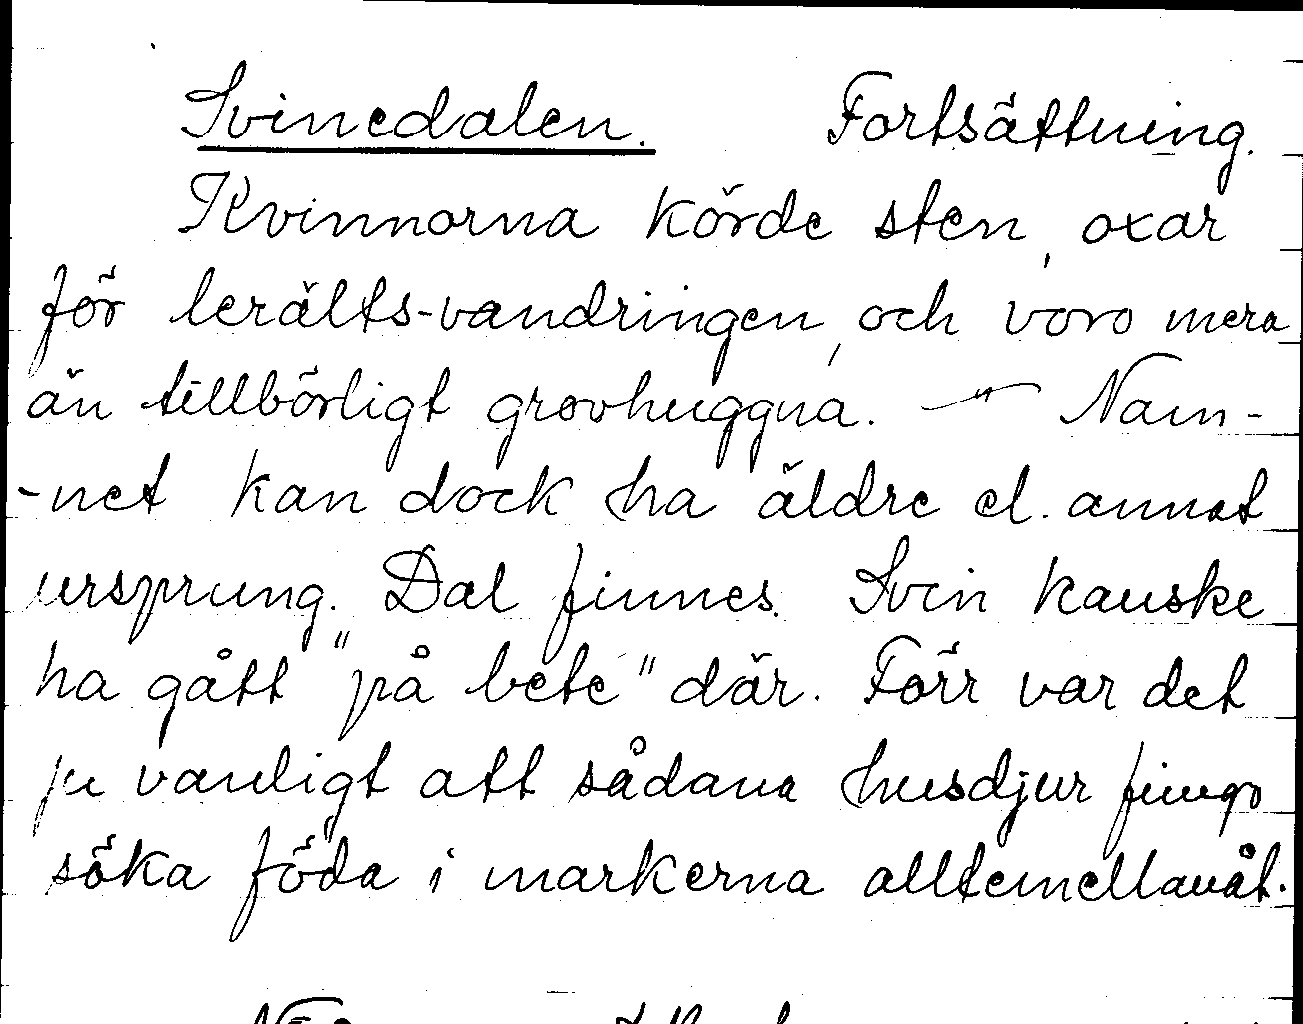 Svinedalen. Fortsättning.
Kvinnorna körde sten, oxar
för lerälts-vandringen, och voro mera
än tillbörligt grovhuggna. — Nam-
-net kan dock ha äldre el. annat
ursprung. Dal finnes. Svin kanske
ha gått "på bete" där. Förr var det
ju vanligt att sådana husdjur fingo
söka föda i markerna alltemellanåt.